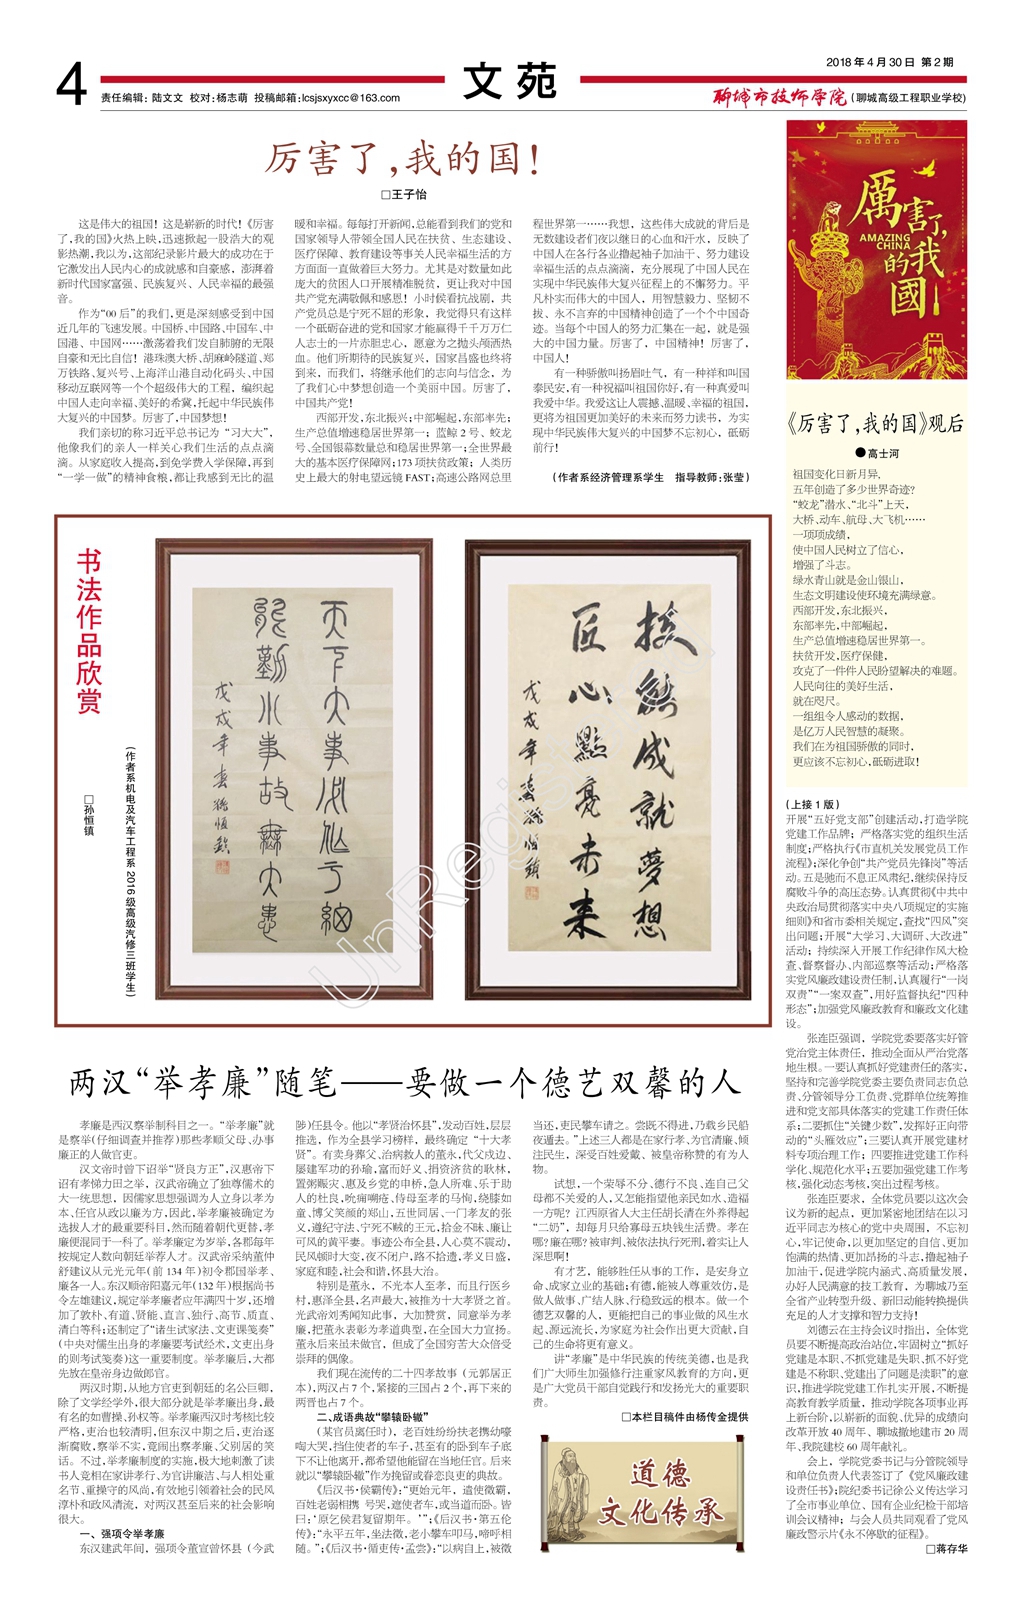 4
责任编辑：陆文文 校对：杨志萌 投稿邮箱：lcsjsxyxcc@163.com
文苑
2018年4月30日 第2期
聊城市技师学院（聊城高级工程职业学校）
厉害了，我的国！
□王子怡
这是伟大的祖国！这是崭新的时代！《厉害
了，我的国》火热上映，迅速掀起一股浩大的观
影热潮，我以为，这部纪录影片最大的成功在于
它激发出人民内心的成就感和自豪感，澎湃着
新时代国家富强、民族复兴、人民幸福的最强
音。
作为“00后”的我们，更是深刻感受到中国
近几年的飞速发展。中国桥、中国路、中国车、中
国港、中国网……激荡着我们发自肺腑的无限
自豪和无比自信！港珠澳大桥、胡麻岭隧道、郑
万铁路、复兴号、上海洋山港自动化码头、中国
移动互联网等一个个超级伟大的工程，编织起
中国人走向幸福、美好的希冀，托起中华民族伟
大复兴的中国梦。厉害了，中国梦想！
我们亲切的称习近平总书记为“习大大”，
他像我们的亲人一样关心我们生活的点点滴
滴。从家庭收入提高，到免学费入学保障，再到
“一学一做”的精神食粮，都让我感到无比的温
暖和幸福。每每打开新闻，总能看到我们的党和
国家领导人带领全国人民在扶贫、生态建设、
医疗保障、教育建设等事关人民幸福生活的方
方面面一直做着巨大努力。尤其是对数量如此
庞大的贫困人口开展精准脱贫，更让我对中国
共产党充满敬佩和感恩！小时候看抗战剧，共
产党员总是宁死不屈的形象，我觉得只有这样
一个砥砺奋进的党和国家才能赢得千千万万仁
人志士的一片赤胆忠心，愿意为之抛头颅洒热
血。他们所期待的民族复兴，国家昌盛也终将
到来，而我们，将继承他们的志向与信念，为
了我们心中梦想创造一个美丽中国。厉害了，
中国共产党！
西部开发，东北振兴；中部崛起，东部率先；
生产总值增速稳居世界第一；蓝鲸2号、蛟龙
号、全国银幕数量总和稳居世界第一；全世界最
大的基本医疗保障网；173项扶贫政策；人类历
史上最大的射电望远镜FAST；高速公路网总里
程世界第一……我想，这些伟大成就的背后是
无数建设者们夜以继日的心血和汗水，反映了
中国人在各行各业撸起袖子加油干、努力建设
幸福生活的点点滴滴，充分展现了中国人民在
实现中华民族伟大复兴征程上的不懈努力。平
凡朴实而伟大的中国人，用智慧毅力、坚韧不
拔、永不言弃的中国精神创造了一个个中国奇
迹。当每个中国人的努力汇集在一起，就是强
大的中国力量。厉害了，中国精神！厉害了，
中国人！
有一种骄傲叫扬眉吐气，有一种祥和叫国
泰民安，有一种祝福叫祖国你好，有一种真爱叫
我爱中华。我爱这让人震撼、温暖、幸福的祖国，
更将为祖国更加美好的未来而努力读书，为实
现中华民族伟大复兴的中国梦不忘初心，砥砺
前行！
（作者系经济管理系学生 指导教师：张莹）
厲害了，
AMAZING
CHINA
我的國
《厉害了，我的国》观后
●高士河
祖国变化日新月异，
五年创造了多少世界奇迹？
“蛟龙”潜水、“北斗”上天，
大桥、动车、航母、大飞机……
一项项成绩，
使中国人民树立了信心，
增强了斗志。
绿水青山就是金山银山，
生态文明建设使环境充满绿意。
西部开发，东北振兴，
东部率先，中部崛起，
生产总值增速稳居世界第一。
扶贫开发，医疗保健，
攻克了一件件人民盼望解决的难题。
人民向往的美好生活，
就在咫尺。
一组组令人感动的数据，
是亿万人民智慧的凝聚。
我们在为祖国骄傲的同时，
更应该不忘初心，砥砺进取！
书法作品欣赏
□孙恒镇
（作者系机电及汽车工程系2016级高级汽修三班学生）
天下大事必作于细
能勤小事故无大患
戊戌年春孙恒镇
技能成就梦想
匠心點亮未来
戊戌年春孙恒镇
UnRegistered
两汉“举孝廉”随笔——要做一个德艺双馨的人
孝廉是西汉察举制科目之一。“举孝廉”就
是察举(仔细调查并推荐)那些孝顺父母、办事
廉正的人做官吏。
汉文帝时曾下诏举“贤良方正”，汉惠帝下
诏有孝悌力田之举，汉武帝确立了独尊儒术的
大一统思想，因儒家思想强调为人立身以孝为
本、任官从政以廉为方，因此，举孝廉被确定为
选拔人才的最重要科目，然而随着朝代更替，孝
廉便混同于一科了。举孝廉定为岁举，各郡每年
按规定人数向朝廷举荐人才。汉武帝采纳董仲
舒建议从元光元年(前134年)初令郡国举孝、
廉各一人。东汉顺帝阳嘉元年(132年)根据尚书
令左雄建议，规定举孝廉者应年满四十岁，还增
加了敦朴、有道、贤能、直言、独行、高节、质直、
清白等科；还制定了“诸生试家法、文吏课笺奏”
(中央对儒生出身的孝廉要考试经术，文吏出身
的则考试笺奏)这一重要制度。举孝廉后，大都
先放在皇帝身边做郎官。
两汉时期，从地方官吏到朝廷的名公巨卿，
除了文学经学外，很大部分就是举孝廉出身，最
有名的如曹操、孙权等。举孝廉西汉时考核比较
严格，吏治也较清明，但东汉中期之后，吏治逐
渐腐败，察举不实，竟闹出察孝廉、父别居的笑
话。不过，举孝廉制度的实施，极大地刺激了读
书人竞相在家讲孝行、为官讲廉洁、与人相处重
名节、重操守的风尚，有效地引领着社会的民风
淳朴和政风清流，对两汉甚至后来的社会影响
很大。
一、强项令举孝廉
东汉建武年间，强项令董宣曾怀县（今武
陟)任县令。他以“孝贤治怀县”，发动百姓，层层
推选，作为全县学习榜样，最终确定“十大孝
贤”。有卖身葬父、治病救人的董永，代父戍边、
屡建军功的孙瑜，富而好义、捐资济贫的耿林，
置粥赈灾、惠及乡党的申桥，急人所难、乐于助
人的杜良，吮痈唰疮、侍母至孝的马恂，绕膝如
童、博父笑颜的郑山，五世同居、一门孝友的张
义，遵纪守法、宁死不贼的王元，拾金不昧、廉让
可风的黄平妻。事迹公布全县，人心莫不震动，
民风顿时大变，夜不闭户，路不拾遗，孝义日盛，
家庭和睦，社会和谐，怀县大治。
特别是董永，不光本人至孝，而且行医乡
村，惠泽全县，名声最大，被推为十大孝贤之首。
光武帝刘秀闻知此事，大加赞赏，同意举为孝
廉，把董永表彰为孝道典型，在全国大力宣扬。
董永后来虽未做官，但成了全国穷苦大众倍受
崇拜的偶像。
我们现在流传的二十四孝故事（元郭居正
本），两汉占7个，紧接的三国占2个，再下来的
两晋也占7个。
二、成语典故“攀辕卧辙”
（某官员离任时），老百姓纷纷扶老携幼嚎
啕大哭，挡住使者的车子，甚至有的卧到车子底
下不让他离开，都希望他能留在当地任官。后来
就以“攀辕卧辙”作为挽留或眷恋良吏的典故。
《后汉书·侯霸传》：“更始元年，遣使徵霸，
百姓老弱相携 号哭，遮使者车，或当道而卧。皆
曰：‘原乞侯君复留期年。’”；《后汉书·第五伦
传》：“永平五年，坐法徵，老小攀车叩马，啼呼相
随。”；《后汉书·循吏传·孟尝》：“以病自上，被徵
当还，吏民攀车请之。尝既不得进，乃载乡民船
夜遁去。”上述三人都是在家行孝、为官清廉、倾
注民生，深受百姓爱戴、被皇帝称赞的有为人
物。
试想，一个荣辱不分、德行不良、连自己父
母都不关爱的人，又怎能指望他亲民如水、造福
一方呢？江西原省人大主任胡长清在外养得起
“二奶”，却每月只给寡母五块钱生活费。孝在
哪？廉在哪？被审判、被依法执行死刑，着实让人
深思啊！
有才艺，能够胜任从事的工作，是安身立
命、成家立业的基础；有德，能被人尊重效仿，是
做人做事、广结人脉、行稳致远的根本。做一个
德艺双馨的人，更能把自己的事业做的风生水
起、源远流长，为家庭为社会作出更大贡献，自
己的生命将更有意义。
讲“孝廉”是中华民族的传统美德，也是我
们广大师生加强修行注重家风教育的方向，更
是广大党员干部自觉践行和发扬光大的重要职
责。
□本栏目稿件由杨传金提供
道德
文化传承
（上接1版）
开展“五好党支部”创建活动，打造学院
党建工作品牌；严格落实党的组织生活
制度；严格执行《市直机关发展党员工作
流程》；深化争创“共产党员先锋岗”等活
动。五是驰而不息正风肃纪，继续保持反
腐败斗争的高压态势。认真贯彻《中共中
央政治局贯彻落实中央八项规定的实施
细则》和省市委相关规定，查找“四风”突
出问题；开展“大学习、大调研、大改进”
活动；持续深入开展工作纪律作风大检
查、督察督办、内部巡察等活动；严格落
实党风廉政建设责任制，认真履行“一岗
双责”“一案双查”，用好监督执纪“四种
形态”；加强党风廉政教育和廉政文化建
设。
张连臣强调，学院党委要落实好管
党治党主体责任，推动全面从严治党落
地生根。一要认真抓好党建责任的落实，
坚持和完善学院党委主要负责同志负总
责、分管领导分工负责、党群单位统筹推
进和党支部具体落实的党建工作责任体
系；二要抓住“关键少数”，发挥好正向带
动的“头雁效应”；三要认真开展党建材
料专项治理工作；四要推进党建工作科
学化、规范化水平；五要加强党建工作考
核，强化动态考核，突出过程考核。
张连臣要求，全体党员要以这次会
议为新的起点，更加紧密地团结在以习
近平同志为核心的党中央周围，不忘初
心，牢记使命，以更加坚定的自信、更加
饱满的热情、更加昂扬的斗志，撸起袖子
加油干，促进学院内涵式、高质量发展，
办好人民满意的技工教育，为聊城乃至
全省产业转型升级、新旧动能转换提供
充足的人才支撑和智力支持！
刘德云在主持会议时指出，全体党
员要不断提高政治站位，牢固树立“抓好
党建是本职、不抓党建是失职、抓不好党
建是不称职、党建出了问题是渎职”的意
识，推进学院党建工作扎实开展，不断提
高教育教学质量，推动学院各项事业再
上新台阶，以崭新的面貌、优异的成绩向
改革开放40周年、聊城撤地建市20周
年、我院建校60周年献礼。
会上，学院党委书记与分管院领导
和单位负责人代表签订了《党风廉政建
设责任书》；院纪委书记徐公义传达学习
了全市事业单位、国有企业纪检干部培
训会议精神；与会人员共同观看了党风
廉政警示片《永不停歇的征程》。
□蒋存华